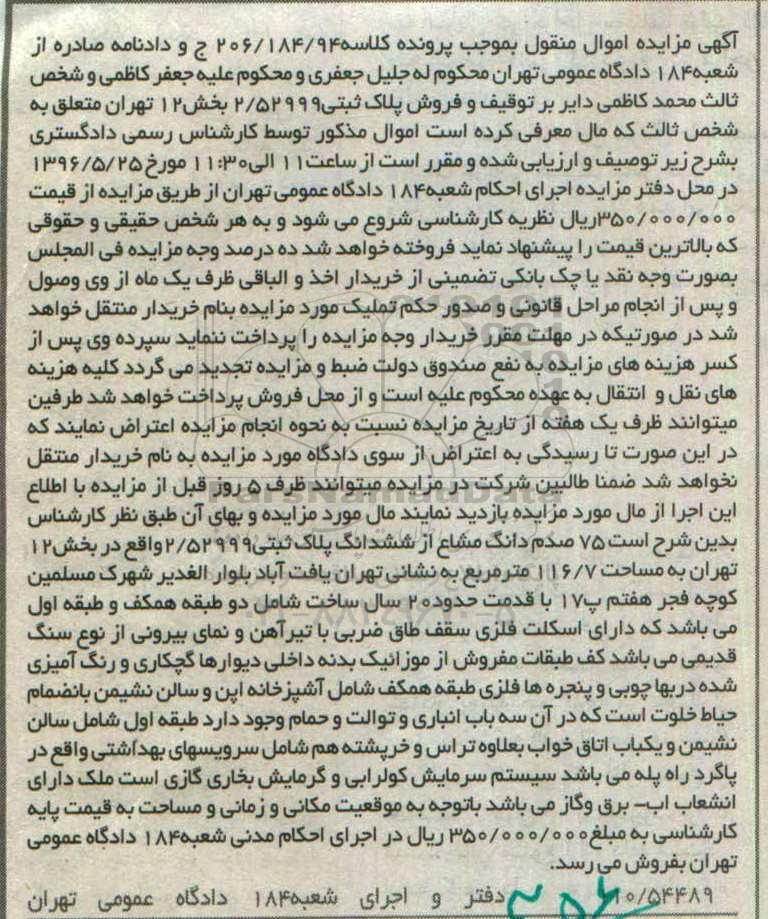 آگهی مزایده اموال منقول بموجب پرونده کلاسه۲۰۶/۱۸۴/۹۴ ج و دادنامه صادره از
شعبه۱۸۴ دادگاه عمومی تهران محکوم له جلیل جعفری و محکوم علیه جعفر کاظمی و شخص
ثالث محمد کاظمی دایر بر توقیف و فروش پلاک ثبتی۲/۵۲۹۹۹ بخش۱۲ تهران متعلق به
شخص ثالث که مال معرفی کرده است اموال مذکور توسط کارشناس رسمی دادگستری
بشرح زیر توصیف و ارزیابی شده و مقرر است از ساعت۱۱ الی۱۱:۳۰ مورخ۱۳۹۶/۵/۲۵
در محل دفتر مزایده اجرای احکام شعبه۱۸۴ دادگاه عمومی تهران از طریق مزایده از قیمت
۳۵۰/۰۰۰/۰۰۰ریال نظریه کارشناسی شروع می شود و به هر شخص حقیقی و حقوقی
که بالاترین قیمت را پیشنهاد نماید فروخته خواهد شد ده درصد وجه مزایده فی المجلس
بصورت وجه نقد یا چک بانکی تضمینی از خریدار اخذ و الباقی ظرف یک ماه از وی وصول
و پس از انجام مراحل قانونی و صدور حکم تملیک مورد مزایده بنام خریدار منتقل خواهد
شد در صورتیکه در مهلت مقرر خریدار وجه مزایده را پرداخت ننماید سپرده وی پس از
کسر هزینه های مزایده به نفع صندوق دولت ضبط و مزایده تجدید می گردد کلیه هزینه
های نقل و انتقال به عهده محکوم علیه است و از محل فروش پرداخت خواهد شد طرفین
میتوانند ظرف یک هفته از تاریخ مزایده نسبت به نحوه انجام مزایده اعتراض نمایند که
در این صورت تا رسیدگی به اعتراض از سوی دادگاه مورد مزایده به نام خریدار منتقل
نخواهد شد ضمنا طالبین شرکت در مزایده میتوانند ظرف ۵ روز قبل از مزایده با اطلاع
این اجرا از مال مورد مزایده بازدید نمایند مال مورد مزایده و بهای آن طبق نظر کارشناس
بدین شرح است ۷۵ صدم دانگ مشاع از ششدانگ پلاک ثبتی۲/۵۲۹۹۹واقع در بخش۱۲
تهران به مساحت ۱۱۶/۷ مترمربع به نشانی تهران یافت آباد بلوار الغدیر شهرک مسلمین
کوچه فجر هفتم پ۱۷ با قدمت حدود۲۰ سال ساخت شامل دو طبقه همکف و طبقه اول
می باشد که دارای اسکلت فلزی سقف طاق ضربی با تیرآهن و نمای بیرونی از نوع سنگ
قدیمی می باشد کف طبقات مفروش از موزائیک بدنه داخلی دیوارها گچکاری و رنگ آمیزی
شده دربها چوبی و پنجره ها فلزی طبقه همکف شامل آشپزخانه اپن و سالن نشیمن بانضمام
حیاط خلوت است که در آن سه باب انباری و توالت و حمام وجود دارد طبقه اول شامل سالن
نشیمن و یکباب اتاق خواب بعلاوه تراس و خرپشته هم شامل سرویسهای بهداشتی واقع در
پاگرد راه پله می باشد سیستم سرمایش کولرابی و گرمایش بخاری گازی است ملک دارای
انشعاب اب- برق وگاز می باشد باتوجه به موقعیت مکانی و زمانی و مساحت به قیمت پایه
کارشناسی به مبلغ۳۵۰/۰۰۰/۰۰۰ ریال در اجرای احکام مدنی شعبه۱۸۴ دادگاه عمومی
تهران بفروش می رسد.
۱۱۰/۵۴۴۸۹ دفتر و اجرای شعبه۱۸۴ دادگاه عمومی تهران
ParsNamadData